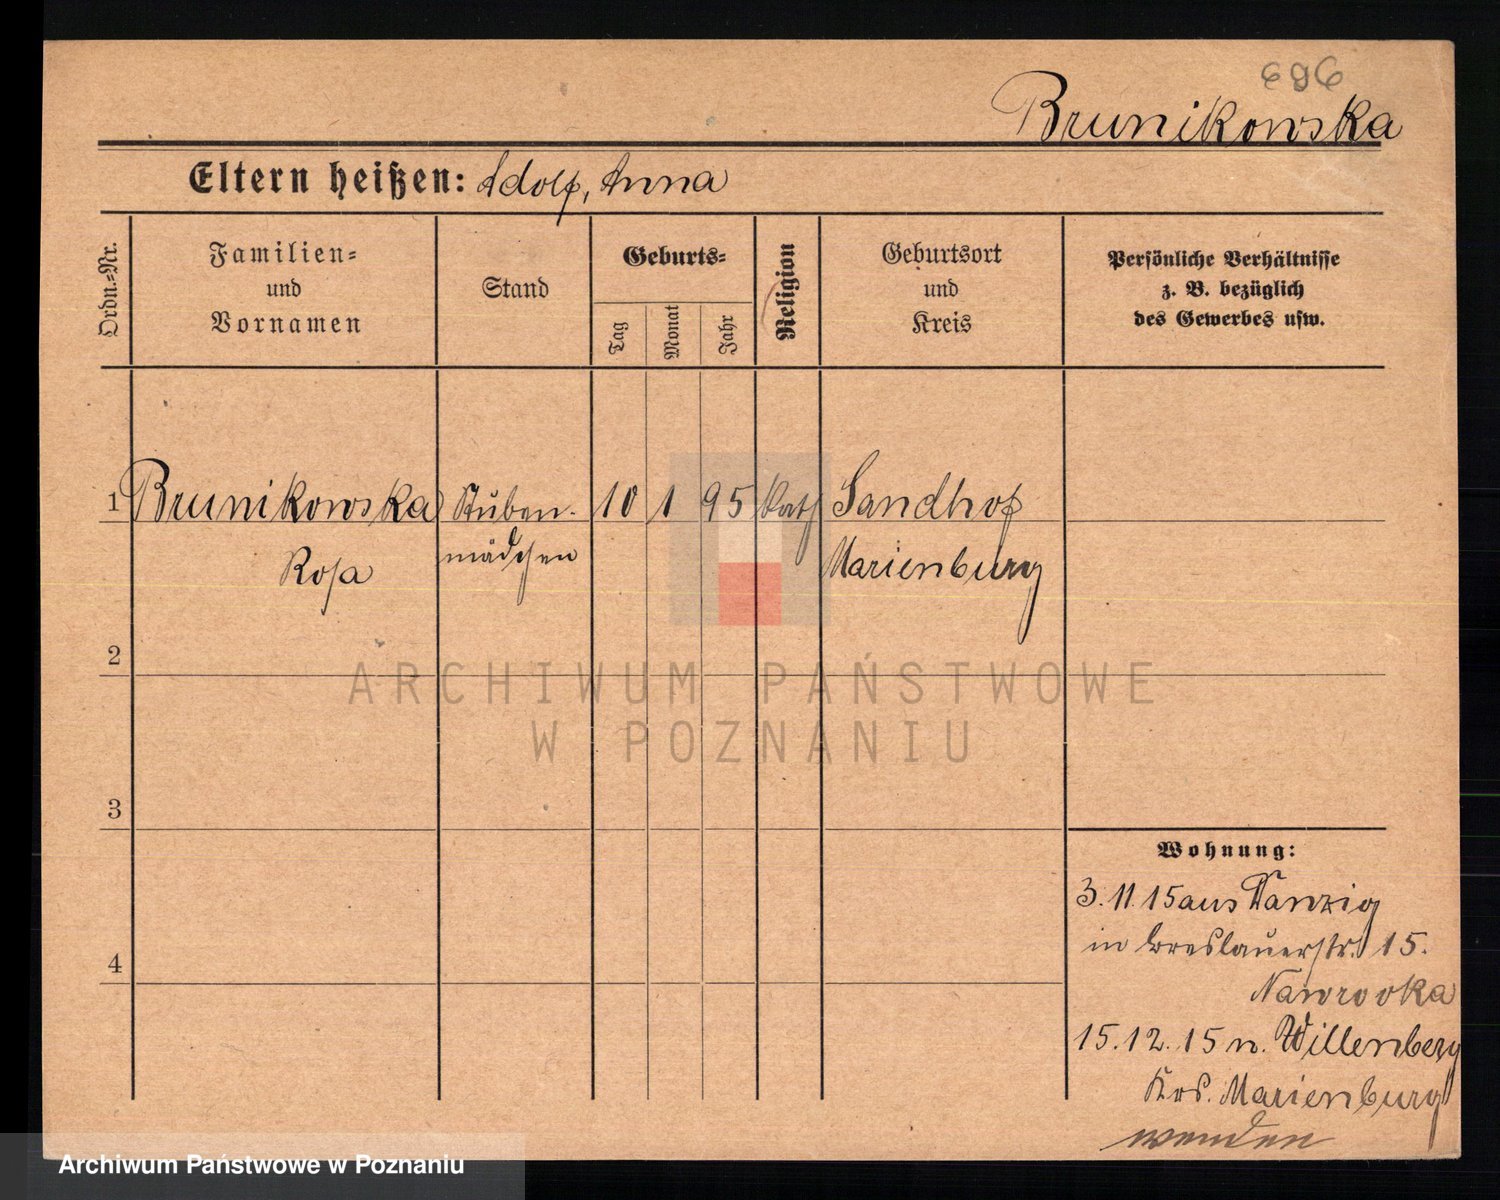 696
Brunikowska
Eltern heißen: Adolf, Anna
Ordn.-Nr.
Familien=
und
Vornamen
Stand
Geburts=
Tag
Monat
Jahr
Religion
Geburtsort
und
Kreis
Persönliche Verhältnisse
z. B. bezüglich
des Gewerbes usw.
1 Brunikowska Stuben- 10 1 95 kath Sandhof
Rosa mädchen Marienburg
2
3
4
ARCHIWUM PAŃSTWOWE
W POZNANIU
Wohnung:
3.11.15 aus Danzig
in Breslauerstr. 15.
Nawrocka
15.12.15 n. Willenberg
Krs. Marienburg
wenden
Archiwum Państwowe w Poznaniu